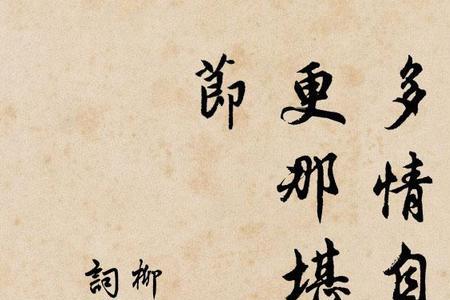 多情自
更那堪
節
柳
詞